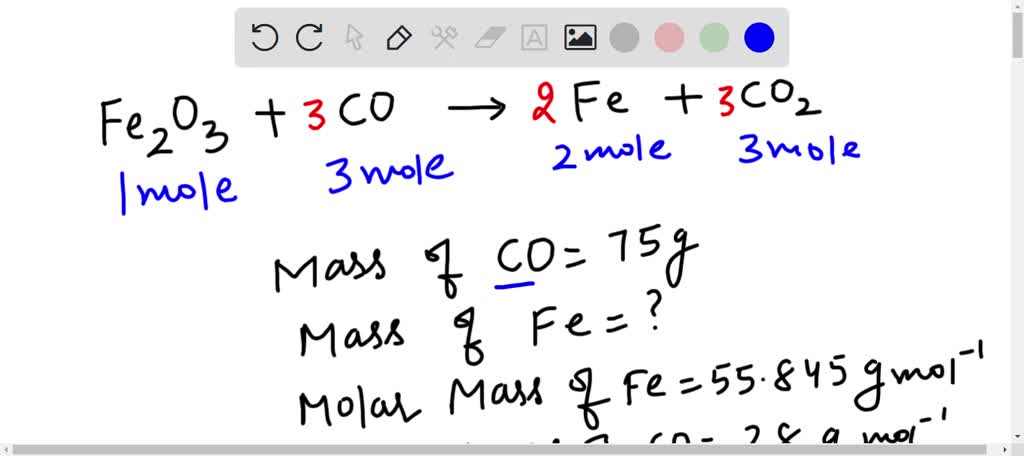 Fe₂O₃ + 3 CO → 2 Fe + 3 CO₂
1 mole 3 mole 2 mole 3 mole
Mass of CO = 75g
Mass of Fe = ?
Molar Mass of Fe = 55.845 g mol⁻¹
CO = 28 g mol⁻¹